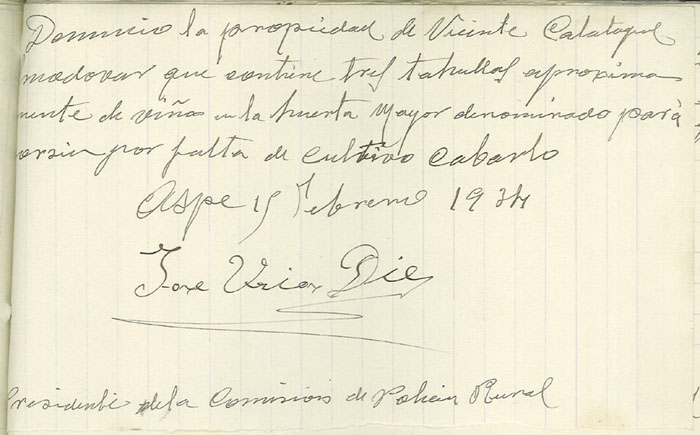 Denuncio la propiedad de Vicente Calatayud
modovar que contiene tres tahullas aproxima
mente de viña en la huerta Mayor denominado para
por falta de cultivo cabarlo
Aspe 15 Febrero 1934
Jose
Presidente de la Comision de Policia Rural